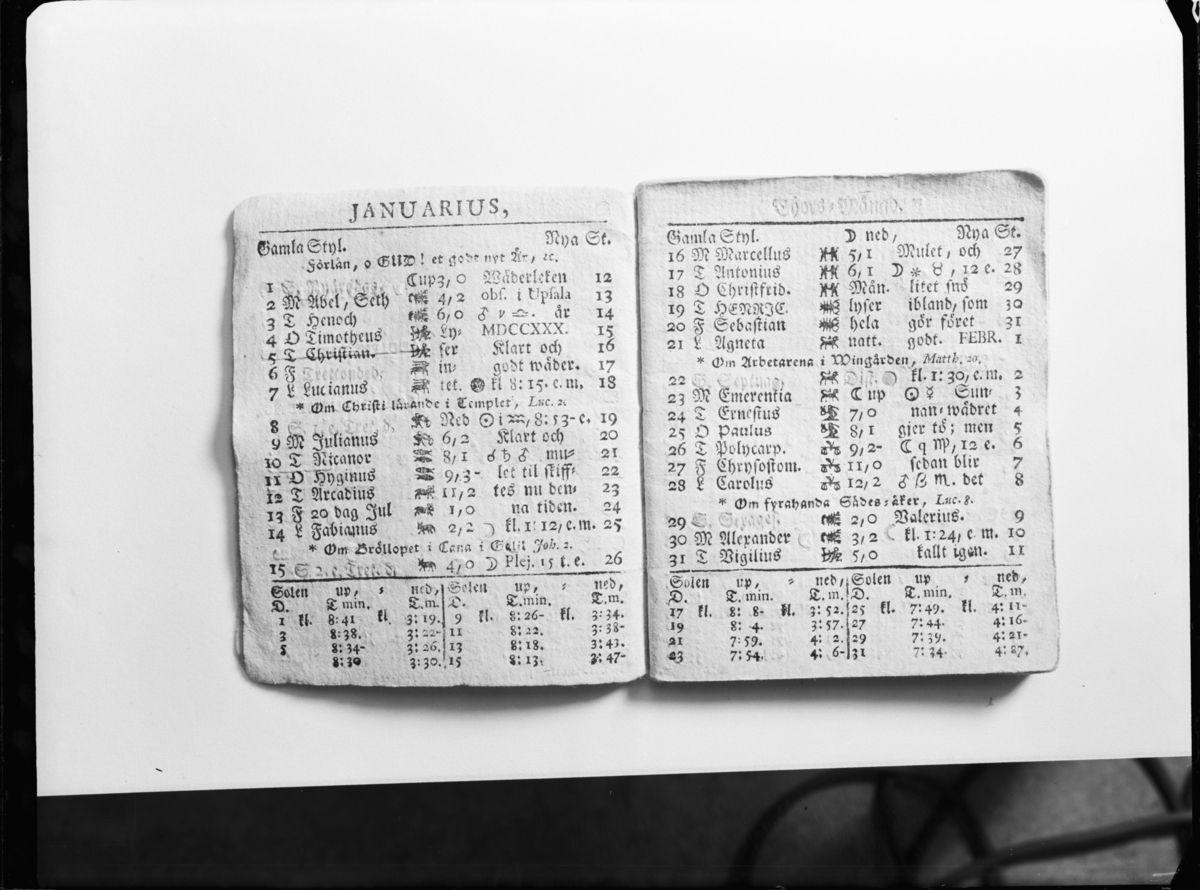 JANUARIUS,
Gamla Styl. Nya St.
Förlän, o GUD! et godt nytt År, ꝛc.
1 Cup 3, 0 Wäderleken 12
2 M Abel, Seth 4, 2 obs. i Upsala 13
3 T Henoch 6, 0 ♂ ♎. är 14
4 O Timotheus Ly- MDCCXXX. 15
5 T Christian. ser Klart och 16
6 F in- godt wäder. 17
7 L Lucianus tet. kl 8: 15. e. m. 18
* Om Christi lärande i Templet, Luc. 2.
8 Ned ☉ i ♒, 8: 53- e. 19
9 M Julianus 6, 2 Klart och 20
10 T Nicanor 8, 1 ♂ ♄ ♂ mu- 21
11 O Hyginus 9, 3- let til skiff- 22
12 T Arcadius 11, 2 tes nu den- 23
13 F 20 dag Jul 1, 0 na tiden. 24
14 L Fabianus 2, 2 ☽ kl. 1: 12, e. m. 25
* Om Bröllopet i Cana i Galil Joh. 2.
15 S 2. e. Tret. d. 4, 0 ☽ Plej. 15 t. e. 26
Solen up, - ned, Solen up, - ned,
D. T. min. T. m. D. T. min. T. m.
1 kl. 8: 41 kl. 3: 19. 9 kl. 8: 26- kl. 3: 34.
3 8: 38. 3: 22- 11 8: 22. 3: 38-
5 8: 34- 3: 26. 13 8: 18. 3: 43.
8: 30 3: 30. 15 8: 13. 3: 47-
Thors-Månad.
Gamla Styl. ☽ ned, Nya St.
16 M Marcellus 5, 1 Mulet, och 27
17 T Antonius 6, 1 ☽ ⚹ ♉, 12 e. 28
18 O Christfrid. Mån- litet snö 29
19 T HENRIC. lyser ibland, som 30
20 F Sebastian hela gör föret 31
21 L Agneta natt. godt. FEBR. 1
* Om Arbetarena i Wingården, Matth. 20.
22 S. Septuag. kl. 1: 30, e. m. 2
23 M Emerentia ☾ up ☉ ☿ Sun- 3
24 T Ernestus 7, 0 nan-wädret 4
25 O Paulus 8, 1 gjer tö; men 5
26 T Polycarp. 9, 2- ☾ q ♍, 12 e. 6
27 F Chrysostom. 11, 0 sedan blir 7
28 L Carolus 12, 2 ♂ β ♏. det 8
* Om fyrahanda Sädes-åker, Luc. 8.
29 S. Sexages. 2, 0 Valerius. 9
30 M Alexander 3, 2 kl. 1: 24, e. m. 10
31 T Vigilius 5, 0 kallt igen. 11
Solen up, - ned, Solen up, - ned,
D. T. min. T. m. D. T. min. T. m.
17 kl. 8: 8- kl. 3: 52. 25 kl. 7: 49. kl. 4: 11-
19 8: 4. 3: 57. 27 7: 44. 4: 16-
21 7: 59. 4: 2. 29 7: 39. 4: 21-
23 7: 54. 4: 6- 31 7: 34. 4: 27.